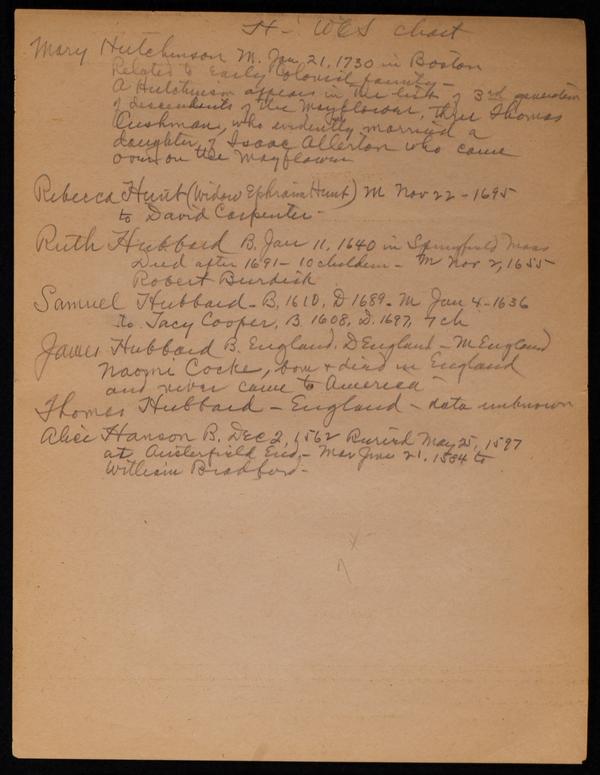 H - WCS chart
Mary Hutchinson M. Jan 21, 1730 in Boston
Related to Early Colonial family -
A Hutchinson appears in the list of 3rd generation
of descendents of the Mayflower, thru Thomas
Cushman, who evidently married a
daughter of Isaac Allerton who came
over on the Mayflower
Rebecca Hunt (Widow Ephraim Hunt) M Nov 22 - 1695
to David Carpenter -
Ruth Hubbard B. Jan 11, 1640 in Springfield Mass
Died after 1691 - 10 children - M Nov 2, 1655
Robert Burdick
Samuel Hubbard - B. 1610, D 1689 - M Jan 4 - 1636
to Tacy Cooper, B. 1608, D. 1697, 7 ch
James Hubbard B. England, D England - M England
Naomi Cocke, born + died in England
and never came to America -
Thomas Hubbard - England - data unknown
Alice Hanson B. Dec 2, 1562 Buried May 25, 1597
at Austerfield Eng. - Mar June 21, 1584 to
William Bradford -